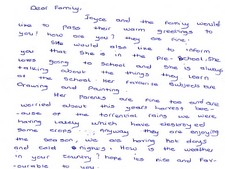 Dear Family,
Joyce and the family would
like to pass their warm greetings to
you! how are you? they are fine.
She would also like to inform
you that she is in the Pre-School. She
was going to school and she is always
talking about the things they learn
at the school. Her favourite subjects are
Crawing and Painting.
Her parents are fine too and are
worried about this years harvest bec-
-ause of the torrential rains we were
having lately which have destroyed
some crops. Anyway they are enjoying
the season, we are having hot days
and cold nights. How is the weather
in your country? hope its nice and Fav-
ourable to you.